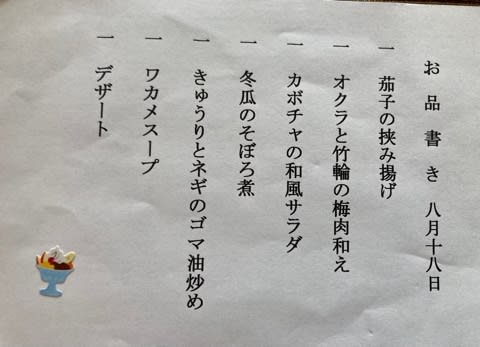 お品書き 八月十八日
一 茄子の挟み揚げ
一 オクラと竹輪の梅肉和え
一 カボチャの和風サラダ
一 冬瓜のそぼろ煮
一 きゅうりとネギのゴマ油炒め
一 ワカメスープ
一 デザート